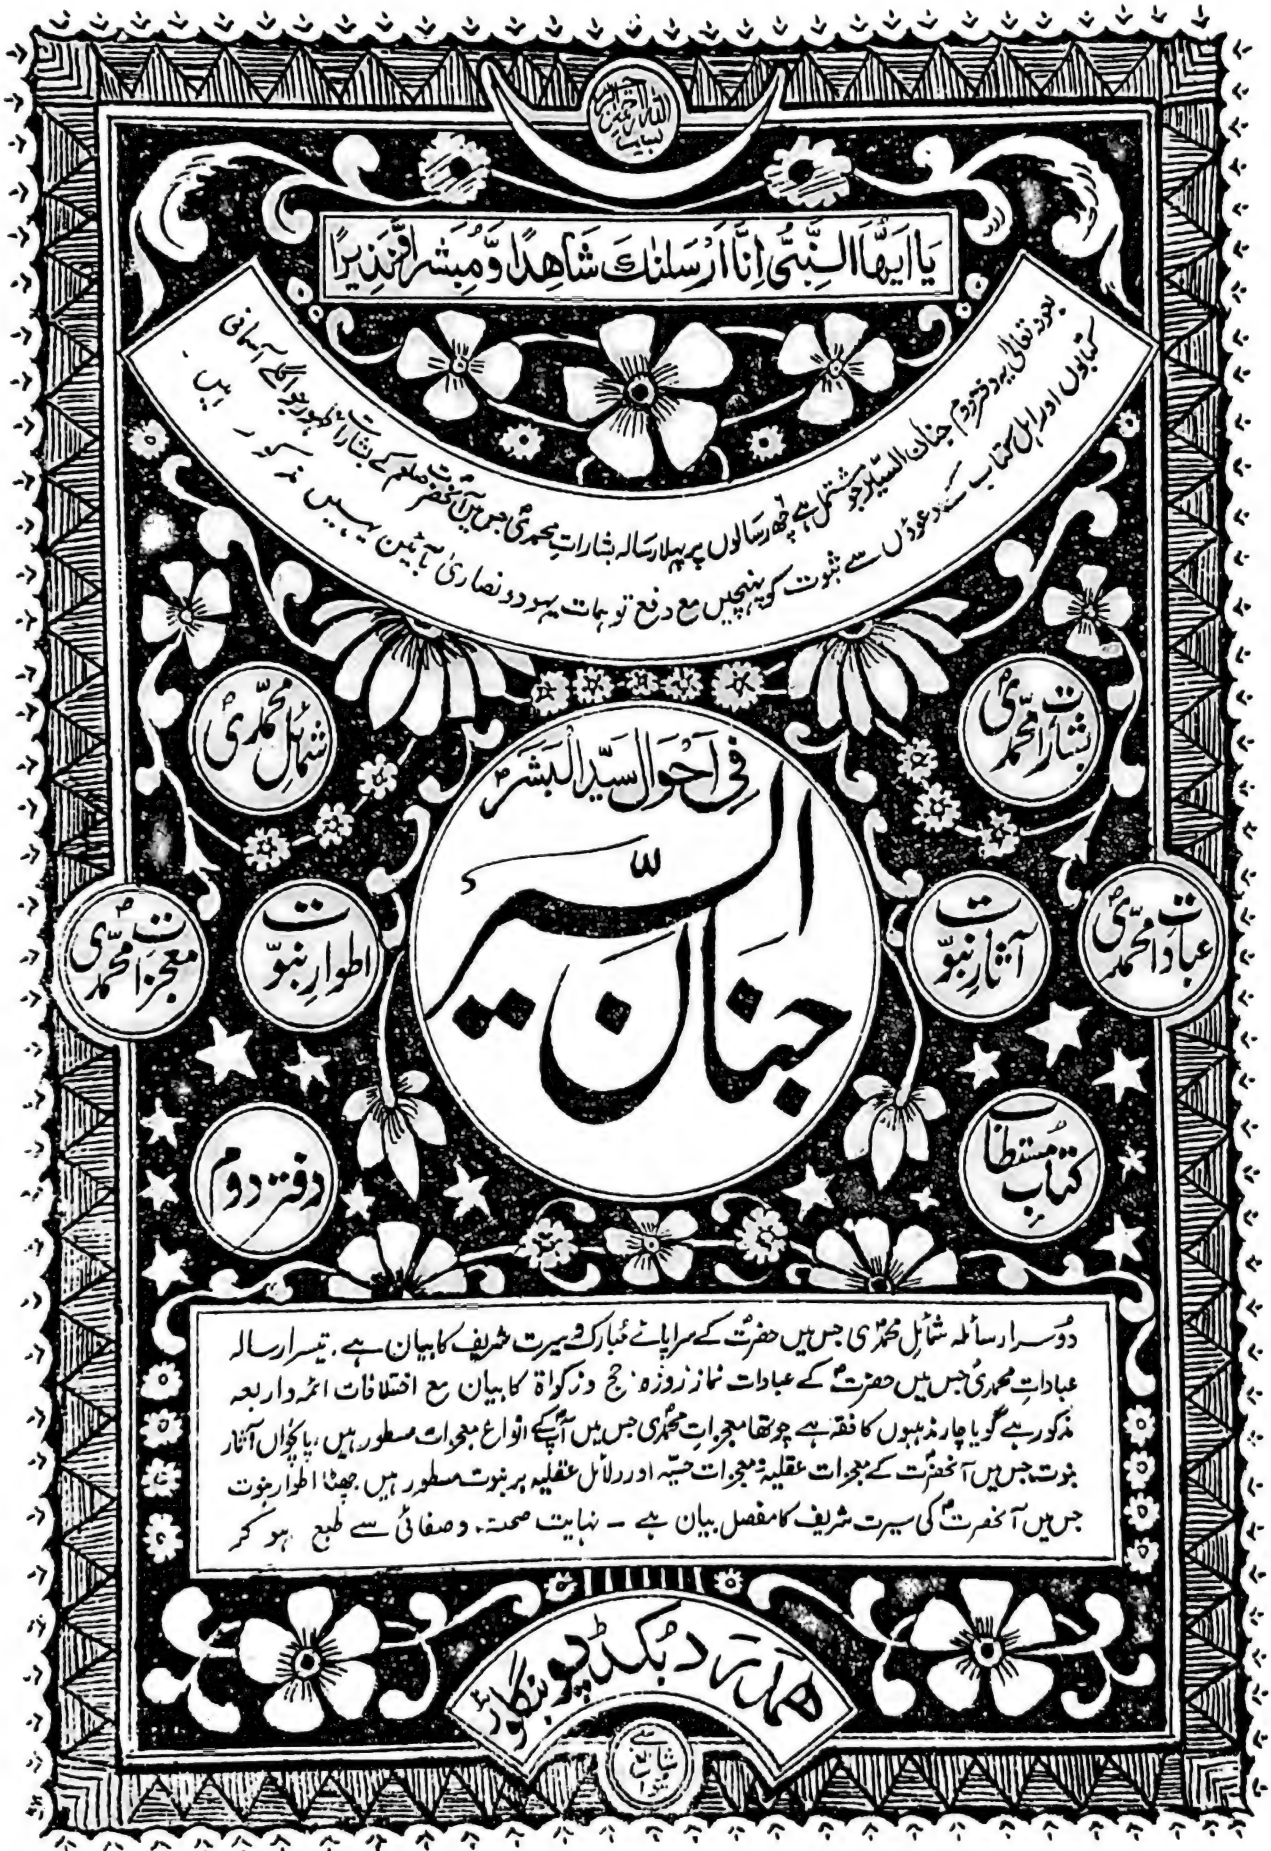 بسم اللہ الرحمن الرحیم
یَا اَیُّهَا النَّبِیُّ اِنَّا اَرْسَلْنٰكَ شَاهِدًا وَّمُبَشِّرًا وَّنَذِیْرًا
بعونہ تعالیٰ یہ دفتر دوم جنان السیر جو مشتمل ہے چھ رسالوں پر پہلا رسالہ بشاراتِ محمدیؐ جس میں آنحضرت صلعم کے بشارات ظہور جو اگلے آسمانی
کتابوں اور اہل کتاب کے دعوؤں سے ثبوت کو پہنچیں مع دفع توہمات یہود و نصاریٰ بآئین بہیں مذکور ہیں۔
شمائلِ محمدیؐ
بشاراتِ محمدیؐ
فِی اَحْوَالِ سَیِّدِ الْبَشَرِؐ
جنان السیر
معجزاتِ محمدیؐ
اطوارِ نبوّت
آثارِ نبوّت
عباداتِ محمدیؐ
دفتر دوم
کتاب مستطاب
دُوسرا رسالہ شمائل محمدیؐ جس میں حضرتؐ کے سراپائے مُبارک و سیرت شریف کا بیان ہے، تیسرا رسالہ
عباداتِ محمدیؐ جس میں حضرتؐ کے عبادات نماز روزہ حج و زکواة کا بیان مع اختلافات ائمہ اربعہ
مذکور ہے گویا چار مذہبوں کا فقہ ہے چوتھا معجزاتِ محمدیؐ جس میں آپؐ کے انواع معجزات مسطور ہیں، پانچواں آثار
نبوت جس میں آنحضرتؐ کے معجزات عقلیہ و معجزات حسیّہ اور دلائل عقلیہ پر نبوت مسطور ہیں چھٹا اطوار نبوت
جس میں آنحضرتؐ کی سیرت شریف کا مفصل بیان ہے ـ نہایت صحت و صفائی سے طبع ہو کر
ھمدرد بکڈپو بنگلور